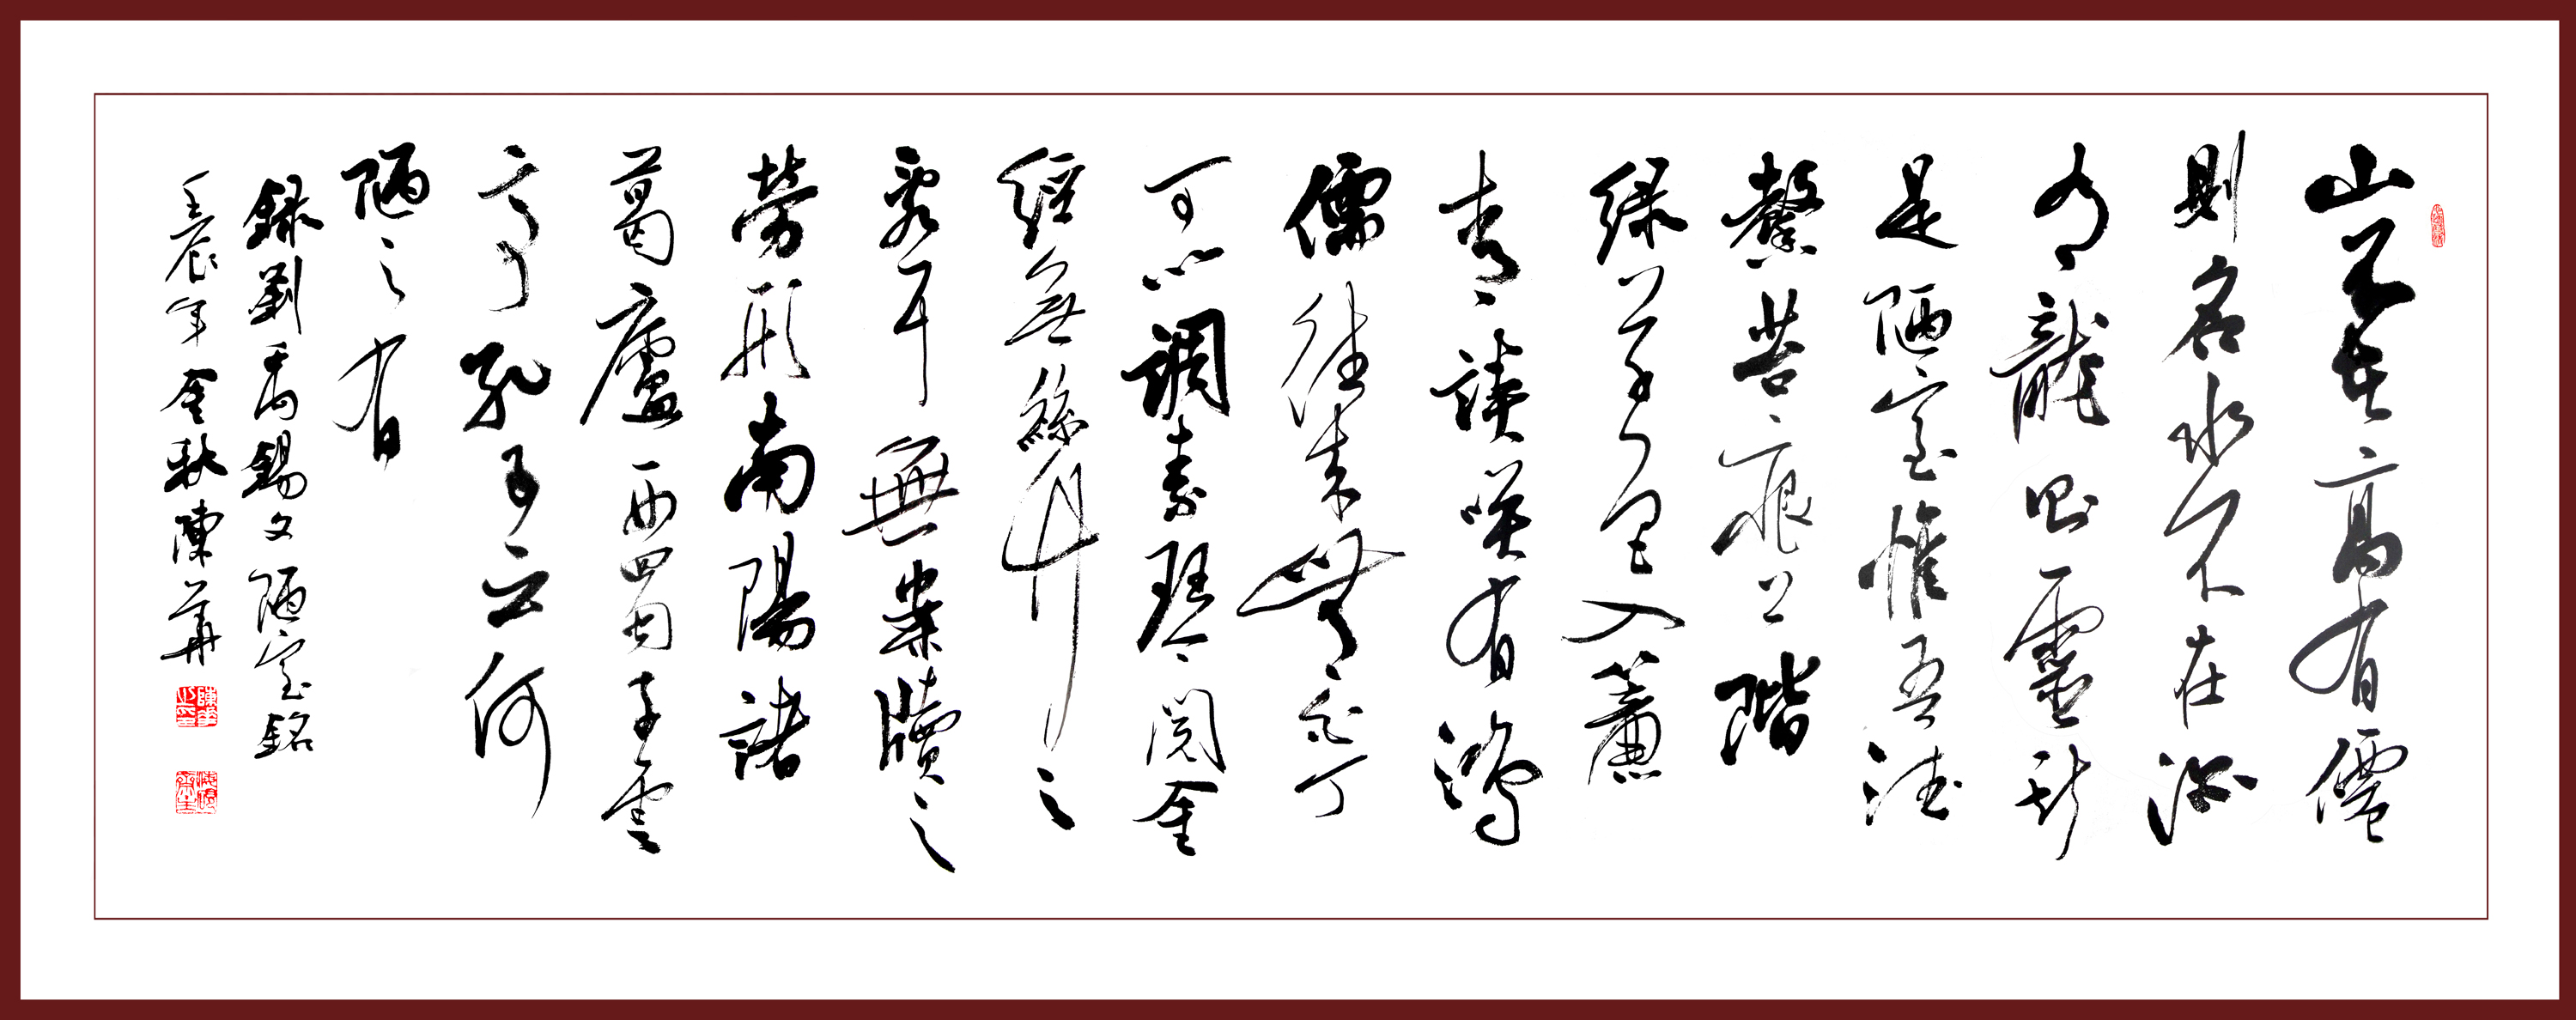 山不在高有僊
則名水不在深
有龍則靈斯
是陋室惟吾德
馨苔痕上階
綠草色入簾
青談咲有鴻
儒往來無白丁
可以調素琴閱金
經無絲竹之
亂耳無案牘之
勞形南陽諸
葛廬西蜀子雲
亭孔子云何
陋之有
錄劉禹錫文陋室銘
壬辰年金秋陳華
陳華之印